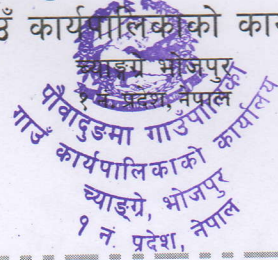 कार्यपालिकाको का
च्याङ्ग्रे भोजपुर
१ नं. प्रदेश, नेपाल
पौवादुङमा गाउँपालिका
गाउँ कार्यपालिकाको कार्यालय
च्याङ्ग्रे, भोजपुर
१ नं. प्रदेश, नेपाल